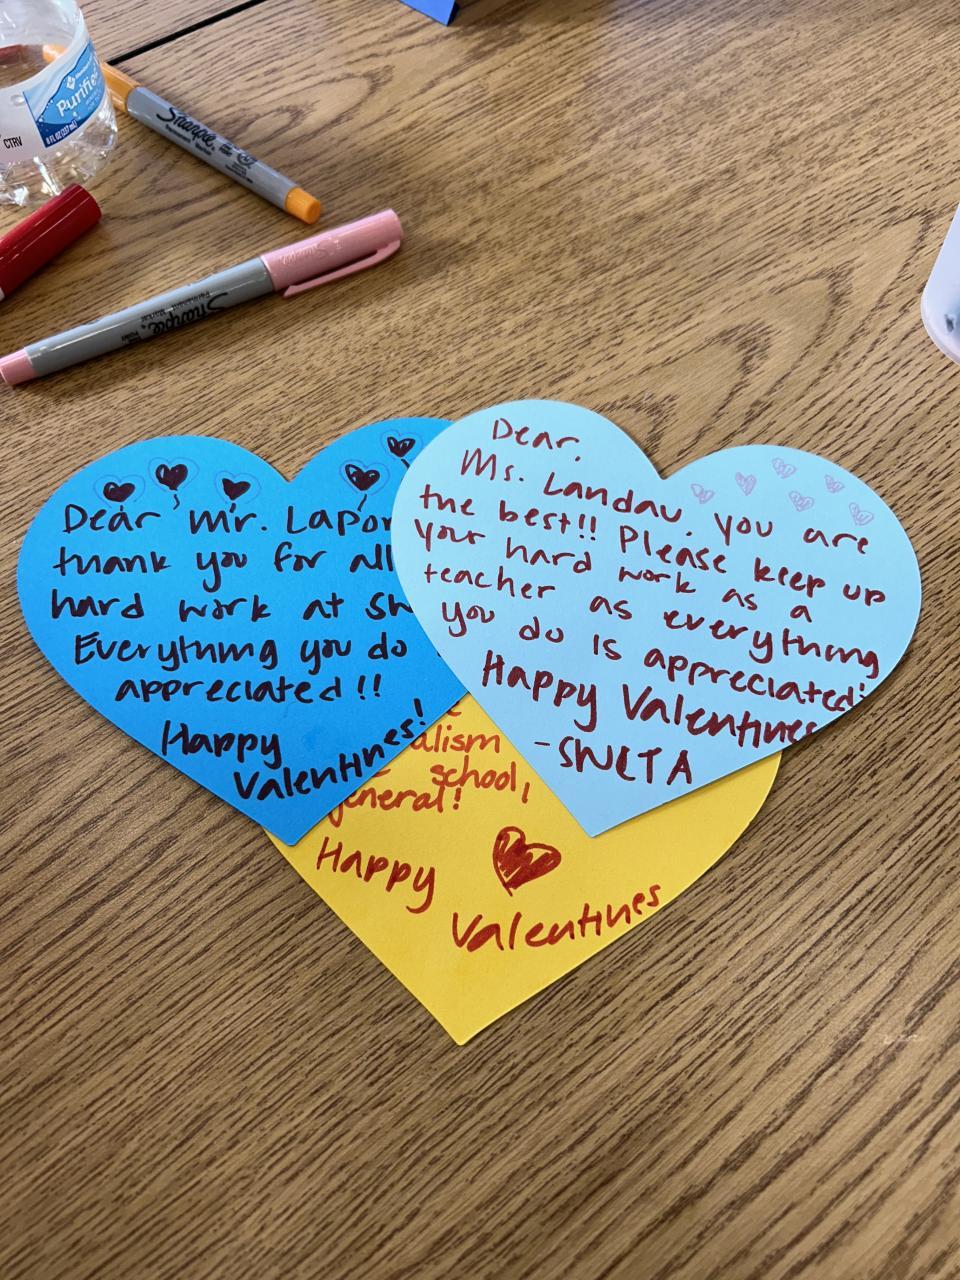 Purifie
8 FL OZ (237 mL)
CTRV
Sharpie
Sharpie
Permanent Marker
Dear Mr. Lapor
thank you for all
hard work at SH
Everything you do
appreciated!!
Happy
Valentines!
Dear,
Ms. Landau, you are
the best!! Please keep up
your hard work as a
teacher as everything
you do is appreciated!
Happy Valentines
-SHCTA
alism
school,
general!
Happy
Valentines